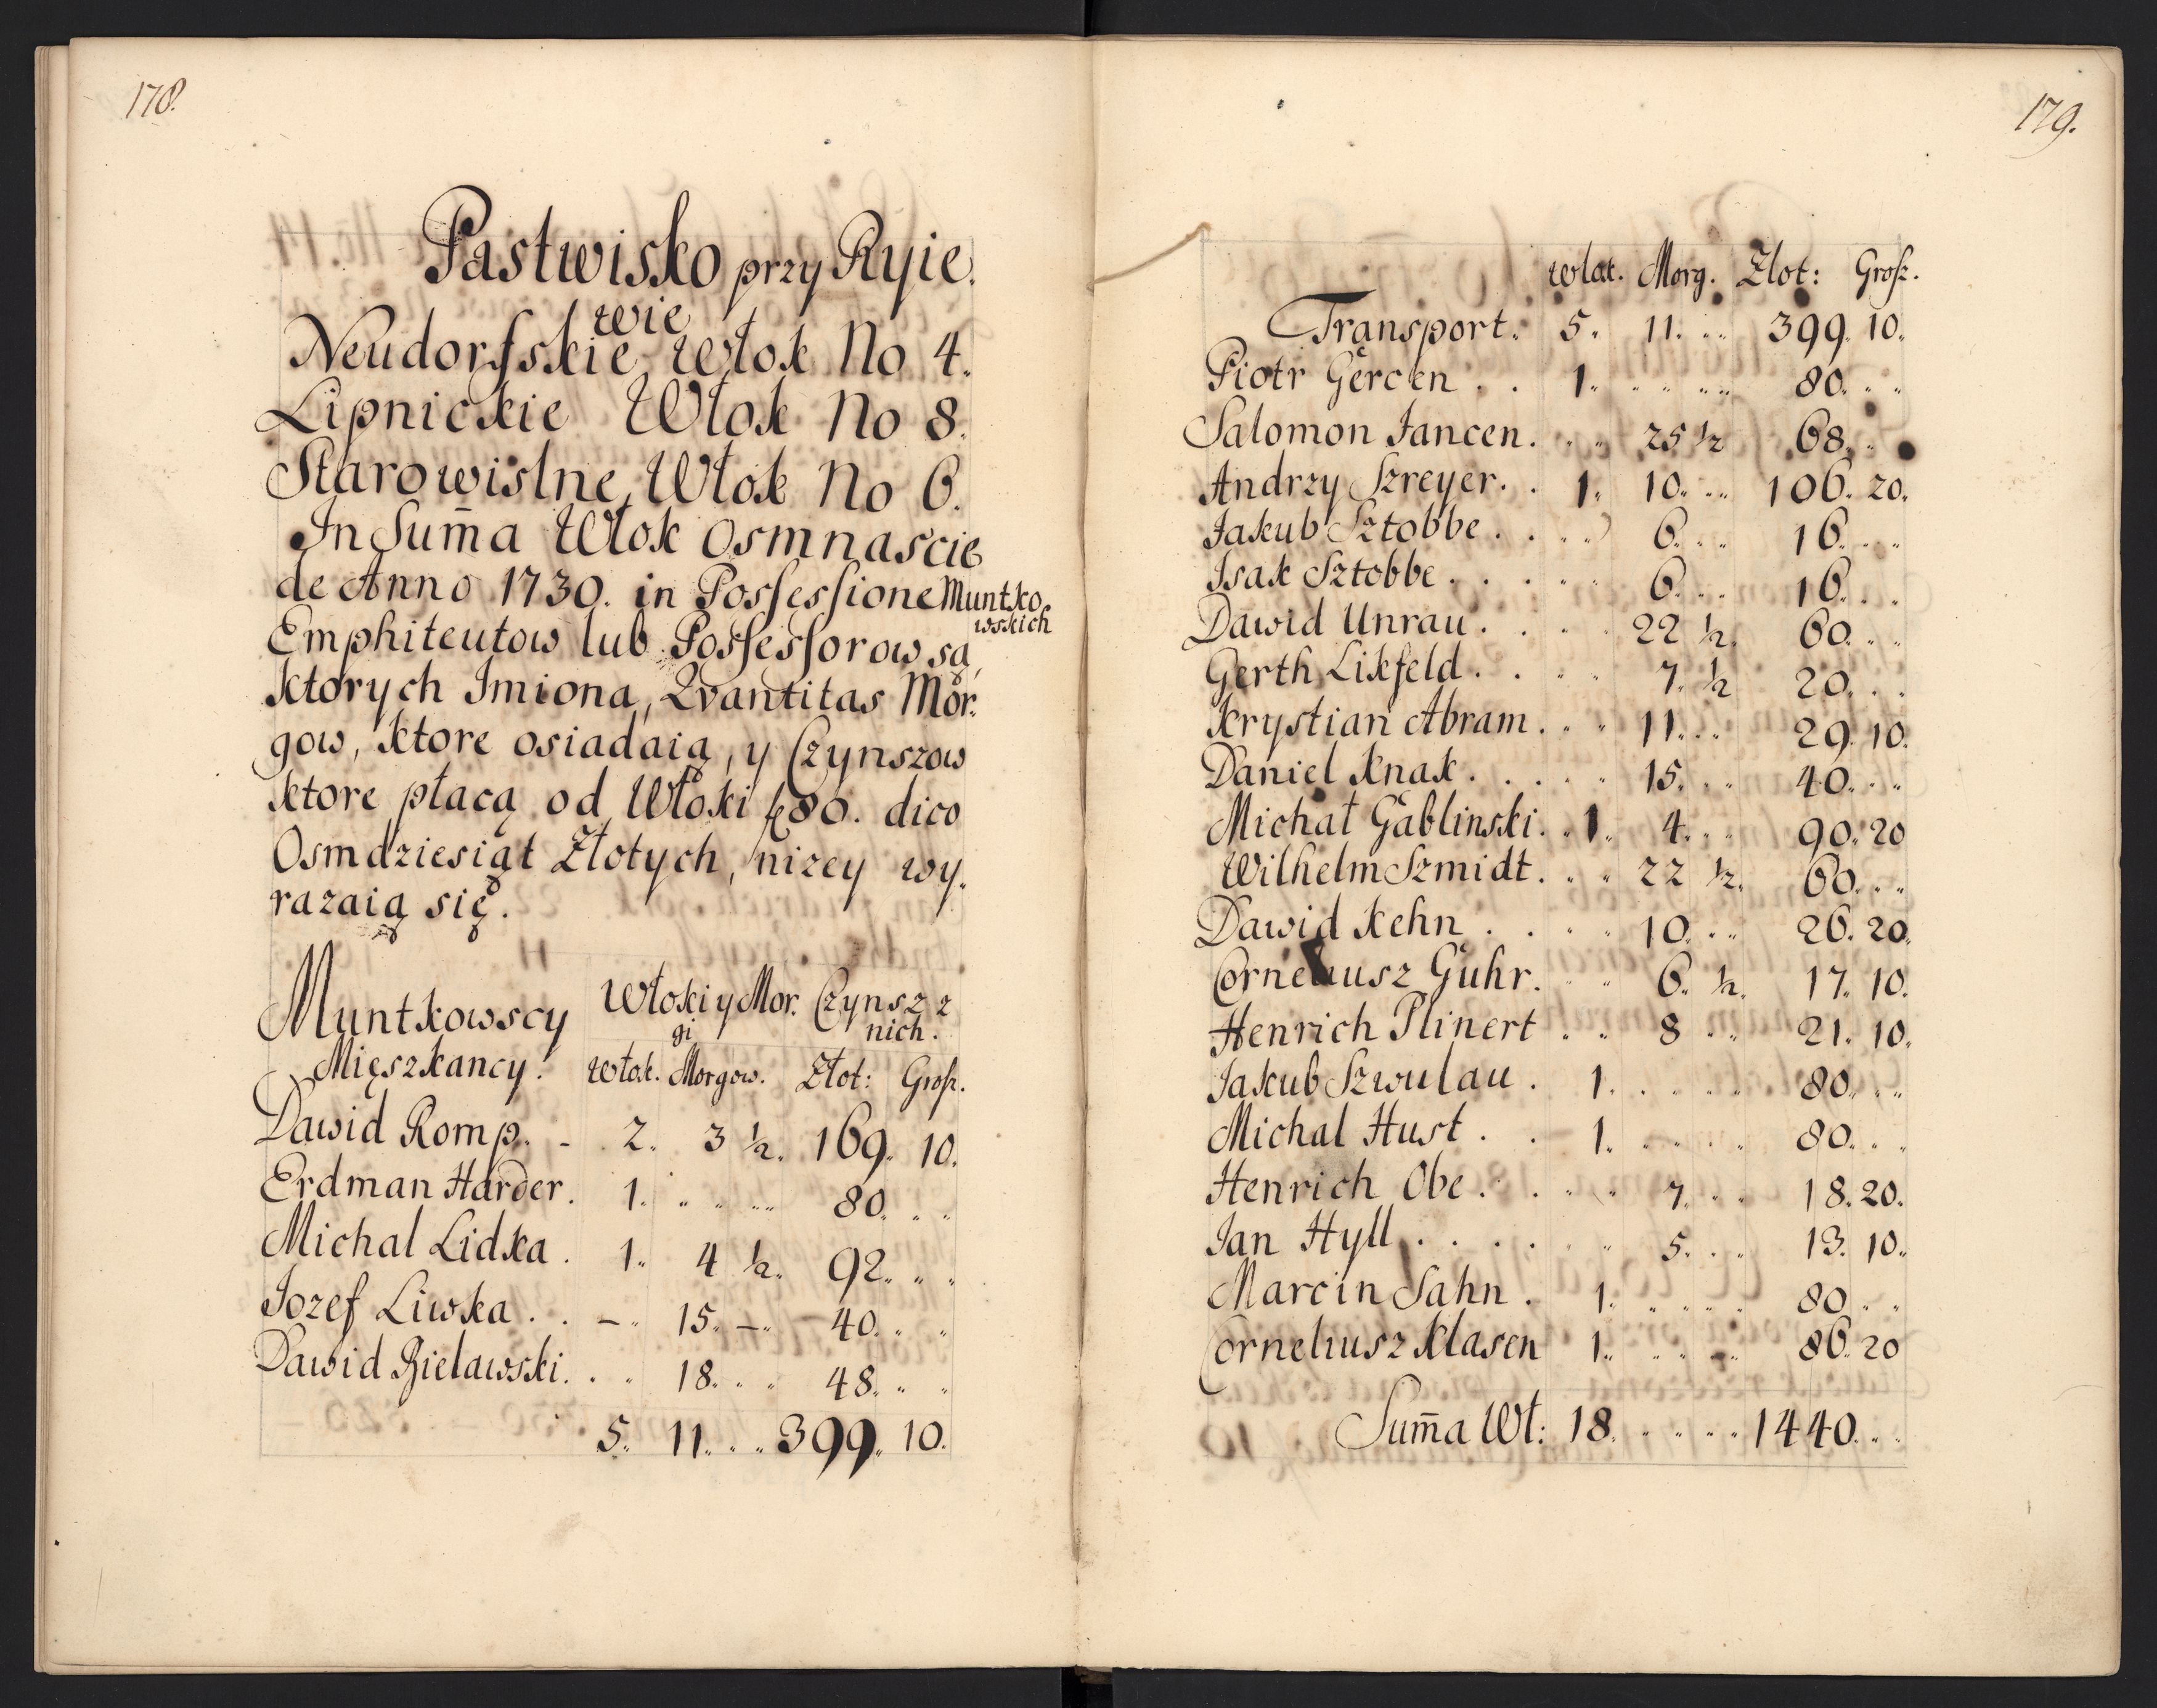 178.
Pastwisko przy Ryie.
wie
Neudorfskie Włok No 4.
Lipnickie Włok No 8.
Starowislne, Włok No 6.
In Sum̄a Włok Osmnascie
de Anno 1730. in Possessione Muntko
wskich
Emphiteutow lub Possessorow są,
ktorych Imiona, Qvantitas Mor.
gow, ktore osiadaią, y Czynszow
ktore płacą od Włoki 80. dico
Osmdziesiąt Złotych, nizey wy.
razaią się.
Muntkowscy Włoki y Mor. Czynsz z
gi nich.
Mięszkancy. Włok. Morgow. Złot: Grosz.
Dawid Romp. - 2. 3 ½. 169. 10.
Erdman Harder. 1. 80.
Michal Lidka. 1. 4 ½. 92.
Iozef Liwska. . - 15. - 40.
Dawid Bielawski. . 18. . . 48.
5. 11. . . 399. 10.
179.
Włok. Morg. Złot: Grosz.
Transport. 5. 11. 399. 10.
Piotr Gercen . . 1. 80.
Salomon Iancen. 25 ½ 68.
Andrzy Szreyer. . 1. 10. 106. 20.
Iakub Sztobbe . . 6. 16.
Isak Sztobbe . . 6. 16.
Dawid Unrau . . 22 ½. 60.
Gerth Likfeld . . 7. ½ 20.
Krystian Abram. 11. 29. 10.
Daniel Knak. . . 15. 40.
Michał Gablinski. 1. 4. 90. 20
Wilhelm Szmidt. 22 ½. 60.
Dawid Kehn . . 10. 26. 20.
Corneliusz Guhr. 6. ½. 17. 10.
Henrich Plinert . . 8 21. 10.
Iakub Szwulau . 1. 80.
Michal Hust . . 1. 80.
Henrich Obe . . 7. 18. 20.
Ian Hyll . . . . 5. 13. 10.
Marcin Sahn . 1. 80.
Corneliusz Klasen 1. 86. 20
Sum̄a Wł: 18. 1440.